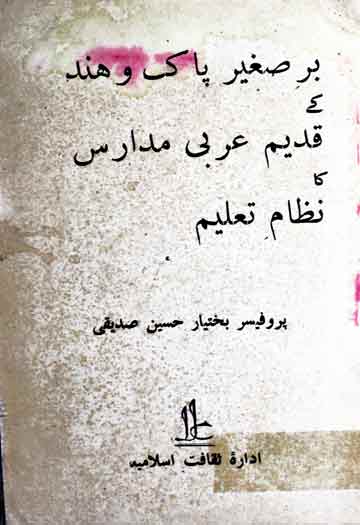 برِ صغیر پاک و هند
کے
قدیم عربی مدارس
کا
نظامِ تعلیم
پروفیسر بختیار حسین صدیقی
ادارۂ ثقافت اسلامیہ